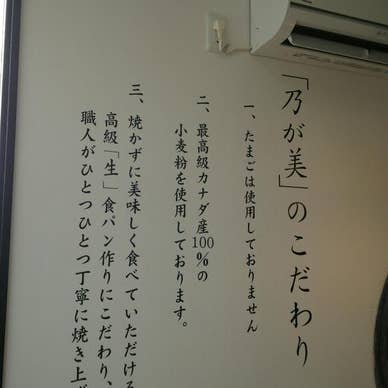 「乃が美」のこだわり
一、たまごは使用しておりません
二、最高級カナダ産100%の
小麦粉を使用しております。
三、焼かずに美味しく食べていただける
高級「生」食パン作りにこだわり、
職人がひとつひとつ丁寧に焼き上げ